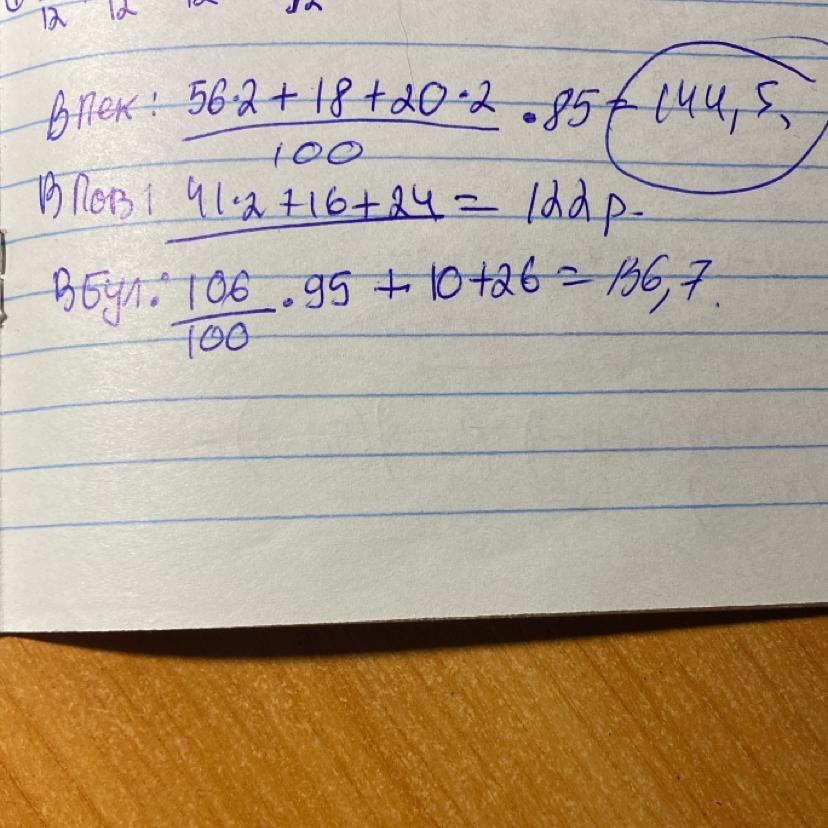 12 12 12 12
В Пек: 56·2+18+20·2 / 100 ·85=144,5,
В Пов: 41·2+16+24 = 122 р.
В Бул: 106 / 100 ·95 + 10+26 = 136,7.